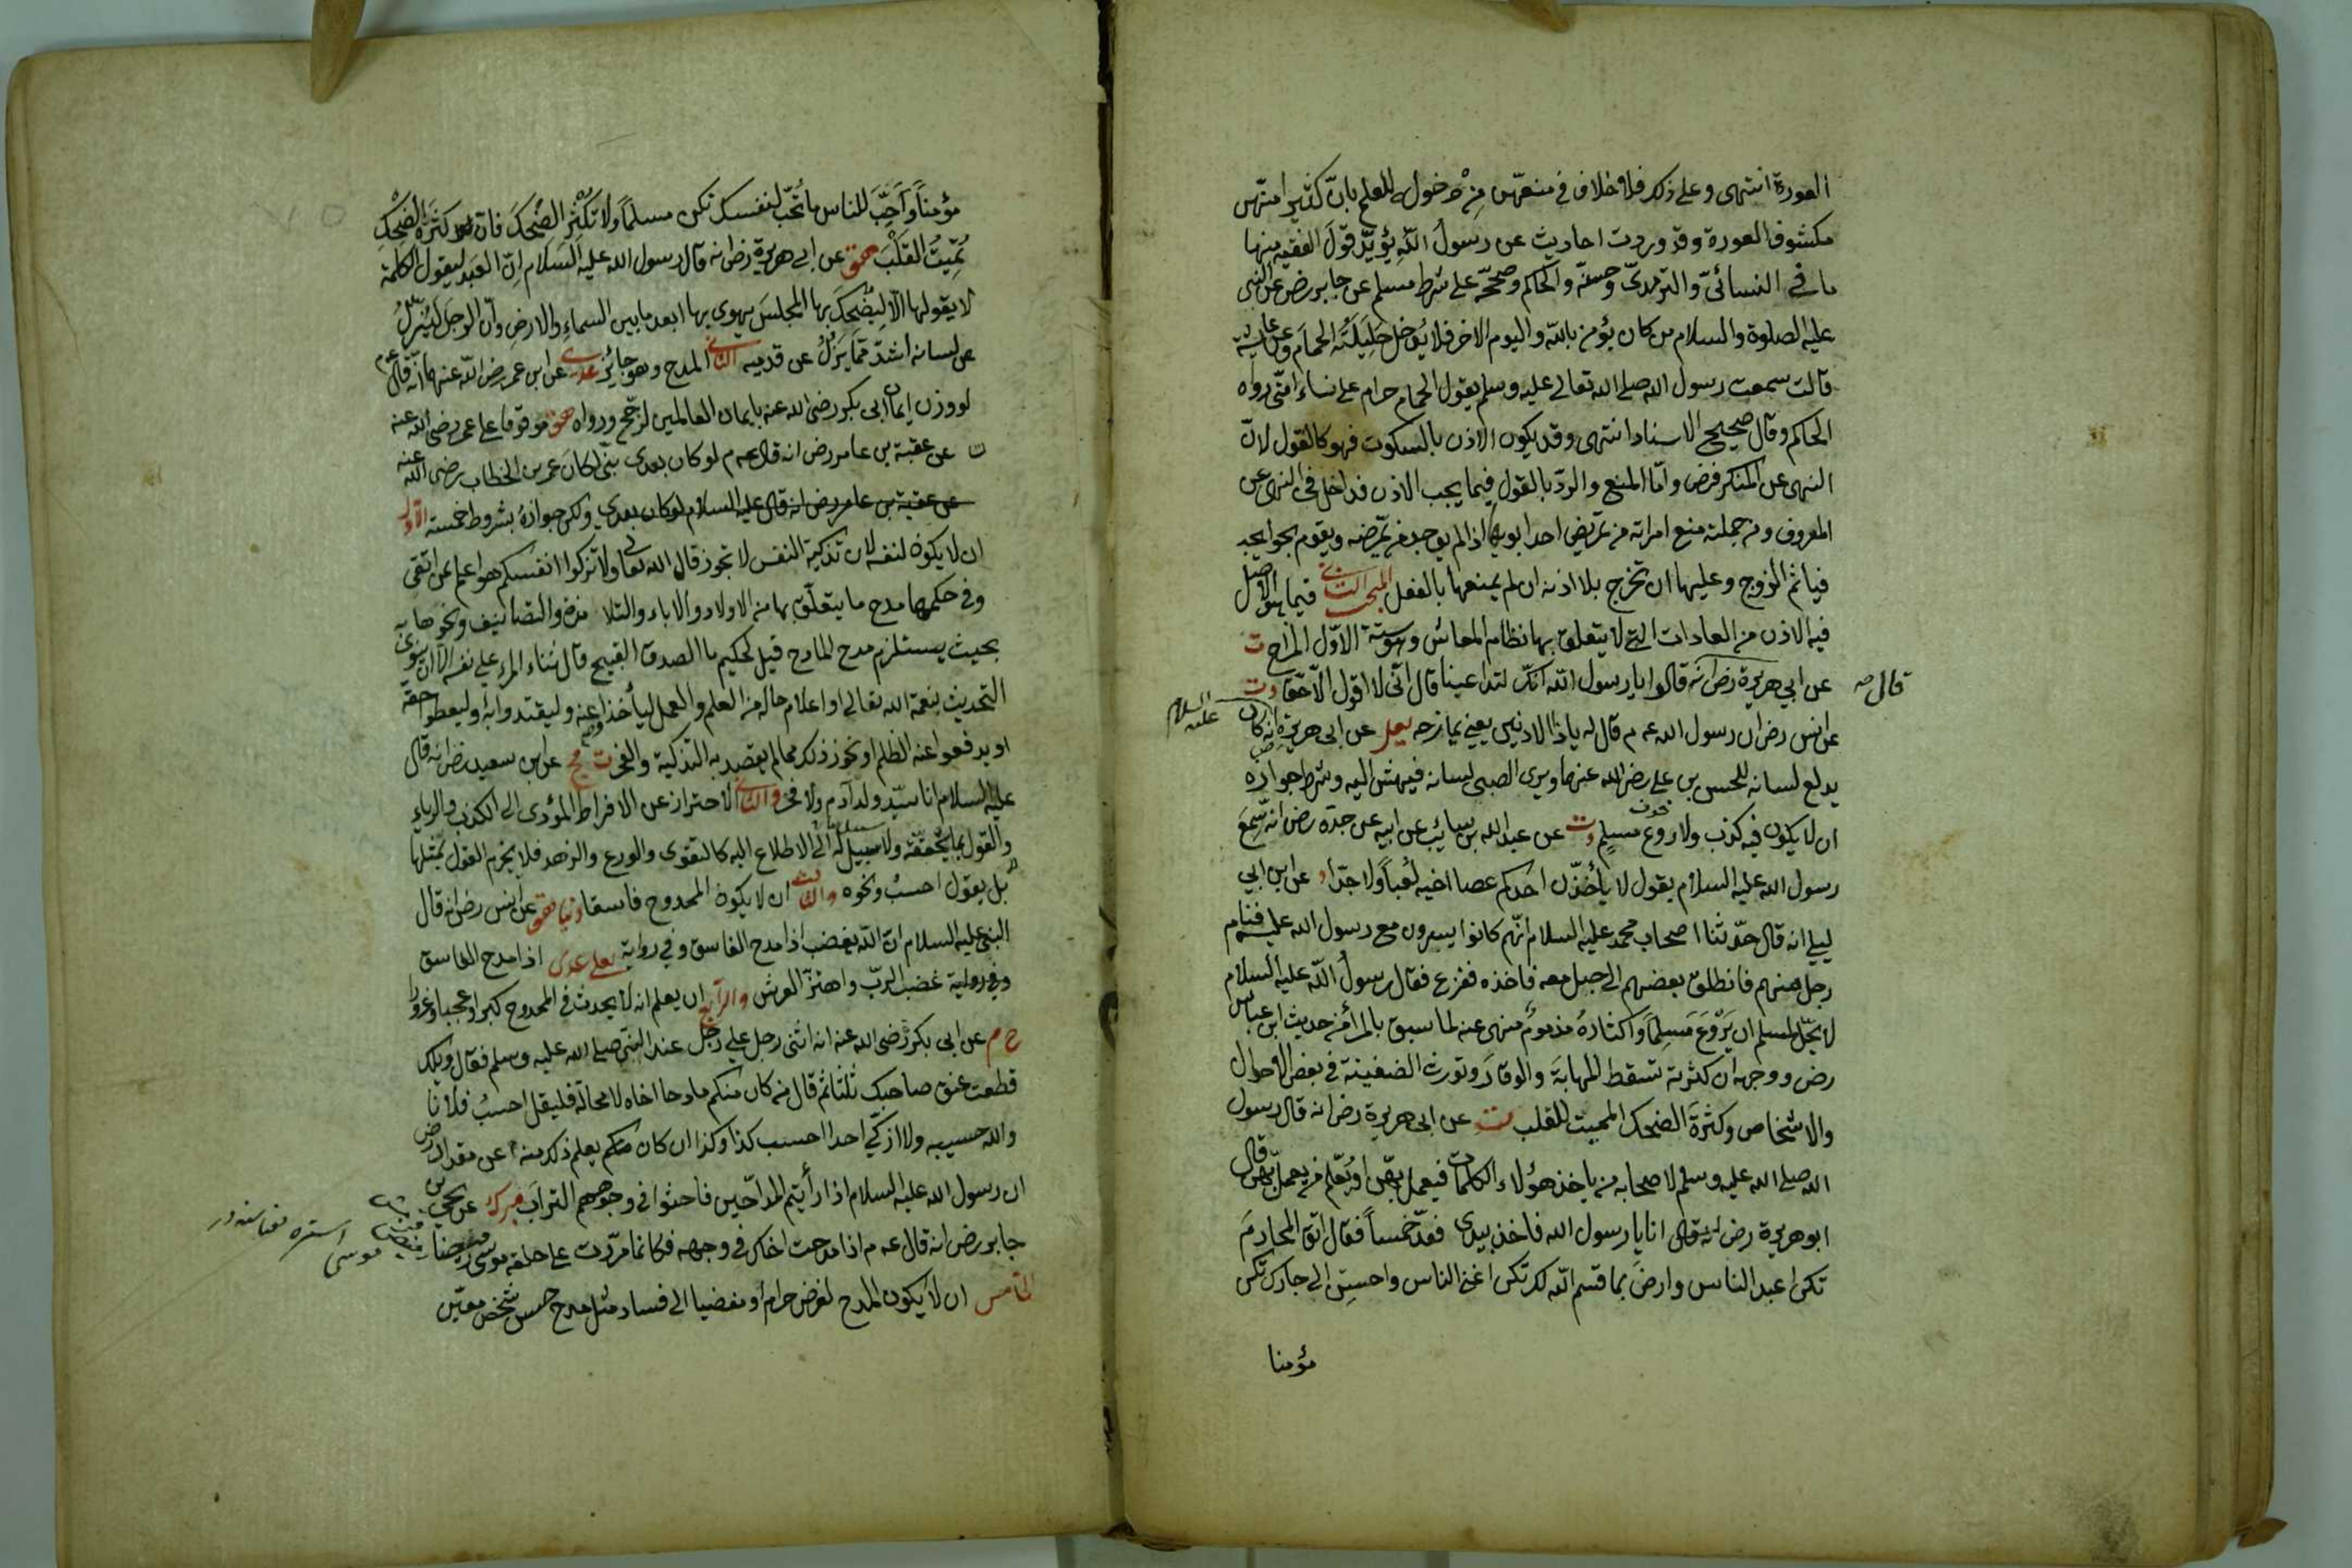 العورة انتهى وعلى ذلك فلا خلاف في منعهن من دخوله للعلم بان كثيرا منهن
مكشوف العورة وقد وردت احاديث عن رسول الله يؤيد قول الفقيه منها
ما في النسائي والترمذي وحسنه والحاكم وصححه على شرط مسلم عن جابر رض عن النبي
عليه الصلوة والسلام من كان يؤمن بالله واليوم الاخر فلا يدخل حليلته الحمام وعن عايشة
قالت سمعت رسول الله صلى الله تعالى عليه وسلم يقول الحمام حرام على نساء امتى رواه
الحاكم وقال صحيح الاسناد انتهى وقد يكون الاذن بالسكوت فهو كالقول لان
النهى عن المنكر فرض واما المنع والرد بالقول فيما يجب الاذن فداخل في النهى عن
المعروف ومن جملته منع امراته من تمريض احد ابويها اذا لم يوجد من يمرضه ويقوم بحوايجه
فياثم الزوج وعليها ان تخرج بلا اذنه ان لم يمنعها بالفعل المبحث الثاني فيما الاصل
فيه الاذن من العادات التي لا يتعلق بها نظام المعاش وهو ستة الاول المزاح ت
عن ابي هريرة رض انه قالوا يا رسول الله انك لتداعبنا قال اني لا اقول الا حقا دت
قال صه
عن انس رض ان رسول الله عه م قال له ياذا الاذنين يعني يمازحه يعلى عن ابى هريرة رض انه كان
عليه السلام
يدلع لسانه للحسن بن على رضى الله عنهما ويرى الصبى لسانه فيهش اليه وشرط جوازه
ان لا يكون فيه كذب ولا روع مسلم دت عن عبد الله بن سائب عن ابيه عن جده رض انه سمع
خوف
رسول الله عليه السلام يقول لا يأخذن احدكم عصا اخيه لعبا ولا جدا د عن ابن ابي
ليلى انه قال حدثنا اصحاب محمد عليه السلام انهم كانوا يسيرون مع رسول الله عليه فنام
رجل منهم فانطلق بعضهم الى حبل معه فاخذه ففزع فقال رسول الله عليه السلام
لا يحل لمسلم ان يروع مسلما واكثاره مذموم منهى عنه لما سبق بالمراء من حديث ابن عباس
رض ووجهه ان كثرته تسقط المهابة والوقار وتورث الضغينة في بعض الاحوال
والاشخاص وكثرة الضحك المميت للقلب ت عن ابى هريرة رض انه قال رسول
الله صلى الله عليه وسلم لاصحابه من ياخذ هؤلاء الكلمات فيعمل بهن او يعلم من يعمل بهن قال
ابو هريرة رض انه قال انا يا رسول الله فاخذ بيدى فعد خمسا فقال اتق المحارم
تكن اعبد الناس وارض بما قسم الله لك تكن اغنى الناس واحسن الى جارك تكن
مؤمنا
مؤمنا واحب للناس ما تحب لنفسك تكن مسلما ولا تكثر الضحك فان كثرة الضحك
تميت القلب هق عن ابى هريرة رض انه قال رسول الله عليه السلام ان العبد ليقول الكلمة
لا يقولها الا ليضحك بها المجلس يهوى بها ابعد ما بين السماء والارض وان الرجل ليزل
عن لسانه اشد مما يزل عن قدميه الثاني المدح وهو جائز عدى عن ابن عمر رضى الله عنهما انه قال عه م
لو وزن ايمان ابى بكر رضى الله عنه بايمان العالمين لرجح ورواه هق موقوفا على عمر رضى الله عنه
ت عن عقبة بن عامر رض انه قال عه م لو كان بعدى نبى لكان عمر بن الخطاب رضى الله عنه
عن عقبة بن عامر رض انه قال عليه السلام لو كان بعدى ولكن جوازه بشروط خمسة الاول
ان لا يكون لنفسه لان تذكية النفس لا تجوز قال الله تعالى ولا تزكوا انفسكم هو اعلم بمن اتقى
وفي حكمها مدح ما يتعلق بها من الاولاد والاباء والتلامذة والتصانيف ونحوها
بحيث يستلزم مدح المادح قيل لحكيم ما الصدق القبيح قال ثناء المرء على نفسه الا ان ينوى به
التحديث بنعمة الله تعالى او اعلام حاله من العلم والعمل ليأخذوا عنه وليقتدوا به او ليعطوا حقه
او يدفعوا عنه الظلم او نحو ذلك مما لم يقصد به التذكية والفخر ت مج عن ابى سعيد رض انه قال
عليه السلام انا سيد ولد آدم ولا فخر والثاني الاحتراز عن الافراط المؤدى الى الكذب والرياء
والقول بما لا يتحققه ولا سبيل له الى الاطلاع اليه كالتقوى والورع والزهد فلا يجزم القول بمثلها
بل يقول احسب ونحوه والثالث ان لا يكون الممدوح فاسقا دنيا هق عن انس رض انه قال
النبى عليه السلام ان الله يغضب اذا مدح الفاسق وفي رواية يعلى عدى اذا مدح الفاسق
وفي رواية غضب الرب واهتز العرش والرابع ان يعلم انه لا يحدث في الممدوح كبرا وعجبا وغرورا
خ م عن ابى بكرة رضى الله عنه انه اثنى رجل على رجل عند النبى صلى الله عليه وسلم فقال ويلك
قطعت عنق صاحبك ثلثا ثم قال من كان منكم مادحا اخاه لا محالة فليقل احسب فلانا
والله حسيبه ولا ازكى احدا احسب كذا وكذا ان كان منكم يعلم ذلك منه م عن مقداد رض
ان رسول الله عليه السلام اذا رأيتم المداحين فاحثوا في وجوههم التراب مبرك عن يحيى بن
جابر رض انه قال عه م اذا مدحت اخاك في وجهه فكانما مررت على حلقه موسى رميضا
موسى استره معناسنه در
الخامس ان لا يكون المدح لغرض حرام او مفضيا الى فساد مثل مدح حسن شخص معين